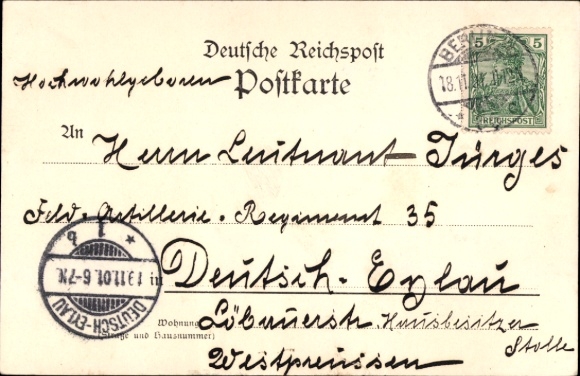 Deutsche Reichspost
Hochwohlgeboren
Postkarte
BERLIN
5 5
REICHSPOST
An Herrn Leutnant Jürges
Feld-Artillerie-Regiment 35
in Deutsch-Eylau
Wohnung
(Straße und Hausnummer)
Löbauerstr. Hausbesitzer
Stolte
Westpreussen
1 b
19.11.01. 6-7V.
DEUTSCH-EYLAU